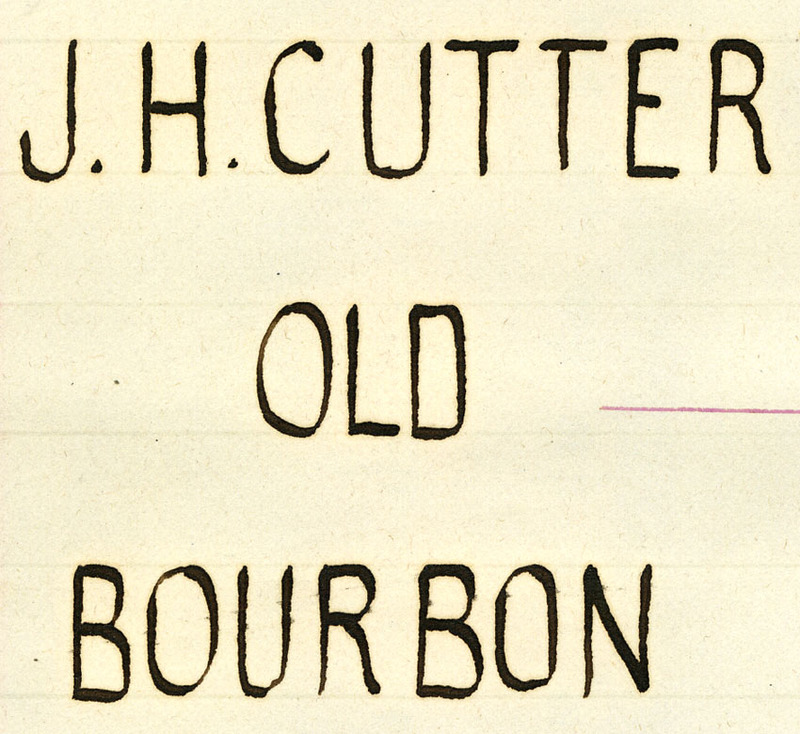 J.H.CUTTER
OLD
BOURBON